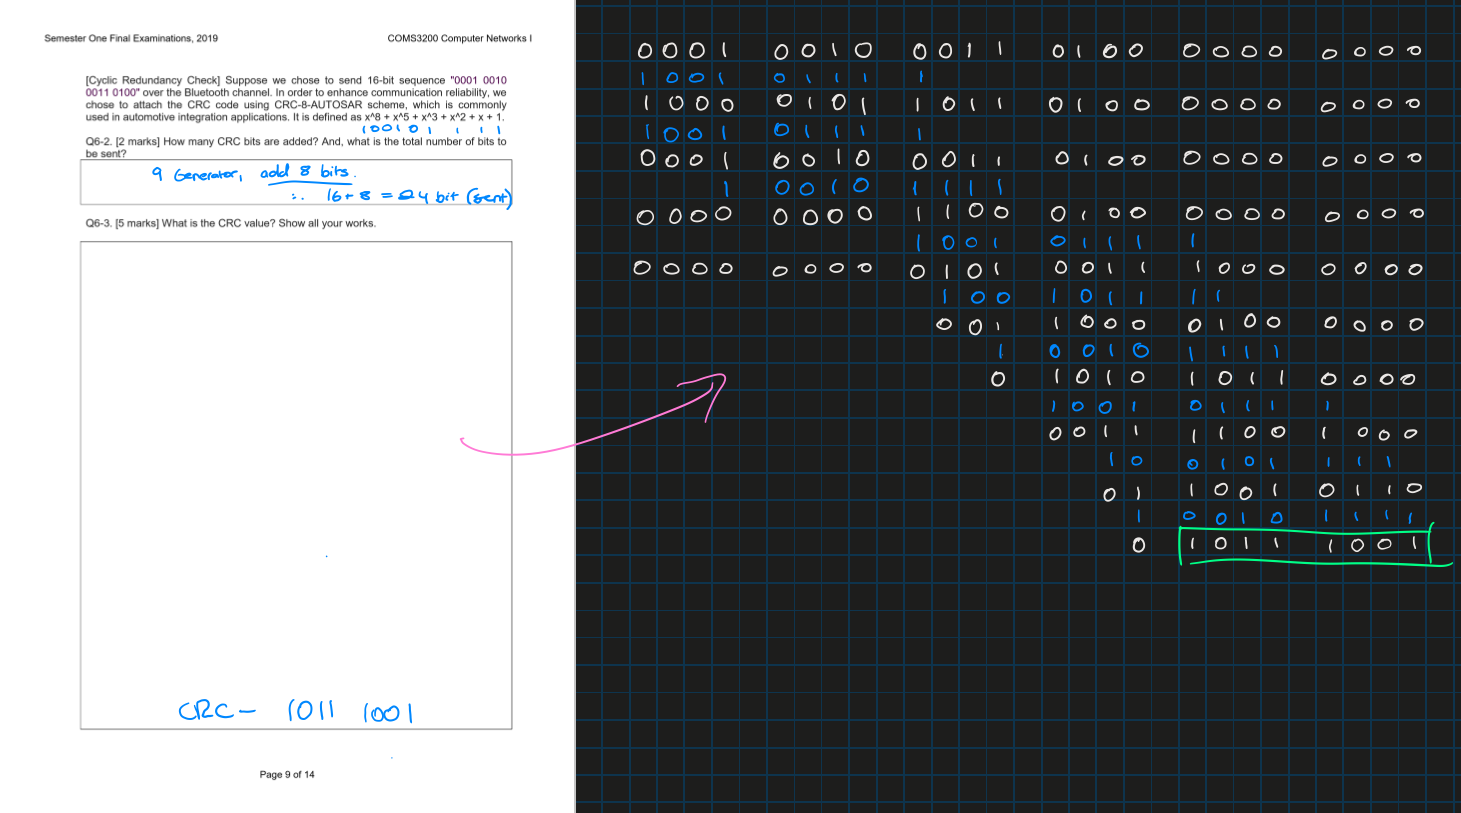 Semester One Final Examinations, 2019 COMS3200 Computer Networks I
[Cyclic Redundancy Check] Suppose we chose to send 16-bit sequence "0001 0010
0011 0100" over the Bluetooth channel. In order to enhance communication reliability, we
chose to attach the CRC code using CRC-8-AUTOSAR scheme, which is commonly
used in automotive integration applications. It is defined as x^8 + x^5 + x^3 + x^2 + x + 1.
100101 1 1 1
Q6-2. [2 marks] How many CRC bits are added? And, what is the total number of bits to
be sent?
9 Generator, add 8 bits.
∴ 16+8 = 24 bit (sent)
Q6-3. [5 marks] What is the CRC value? Show all your works.
CRC - 1011 1001
Page 9 of 14
0001 0010 0011 0100 0000 0000
1001 0111 1
1000 0101 1011 0100 0000 0000
1001 0111 1
0001 0010 0011 0100 0000 0000
1 0010 1111
0000 0000 1100 0100 0000 0000
1001 0111 1
0000 0000 0101 0011 1000 0000
100 1011 11
001 1000 0100 0000
1 0010 1111
0 1010 1011 0000
1001 0111 1
0011 1100 1000
10 0101 111
01 1001 0110
1 0010 1111
0 1011 1001